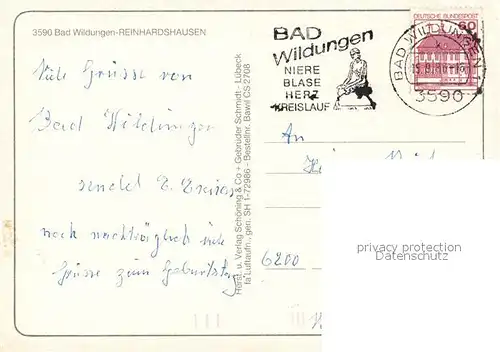 3590 Bad Wildungen-REINHARDSHAUSEN
BAD
Wildungen
NIERE
BLASE
HERZ
KREISLAUF
DEUTSCHE BUNDESPOST
60
BAD WILDUNGEN
3590
Viele Grüsse von
Bad Wildungen
sendet E.
noch nachträglich viele
Grüsse zum Geburtstag
Herst. u. Verlag Schöning & Co + Gebrüder Schmidt · Lübeck
fa Luftaufn., gen. SH 1-72986 - Bestellnr. Bawil CS 2708
An
6200
privacy protection
Datenschutz